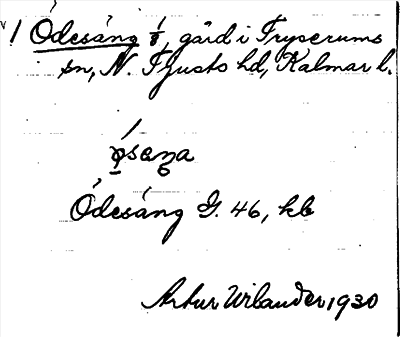 1 Ödesäng 1/8, gård i Tryserums
sn, N. Tjusts hd, Kalmar l.
Ödesäng G. 46, kb
Artur Wilander 1930